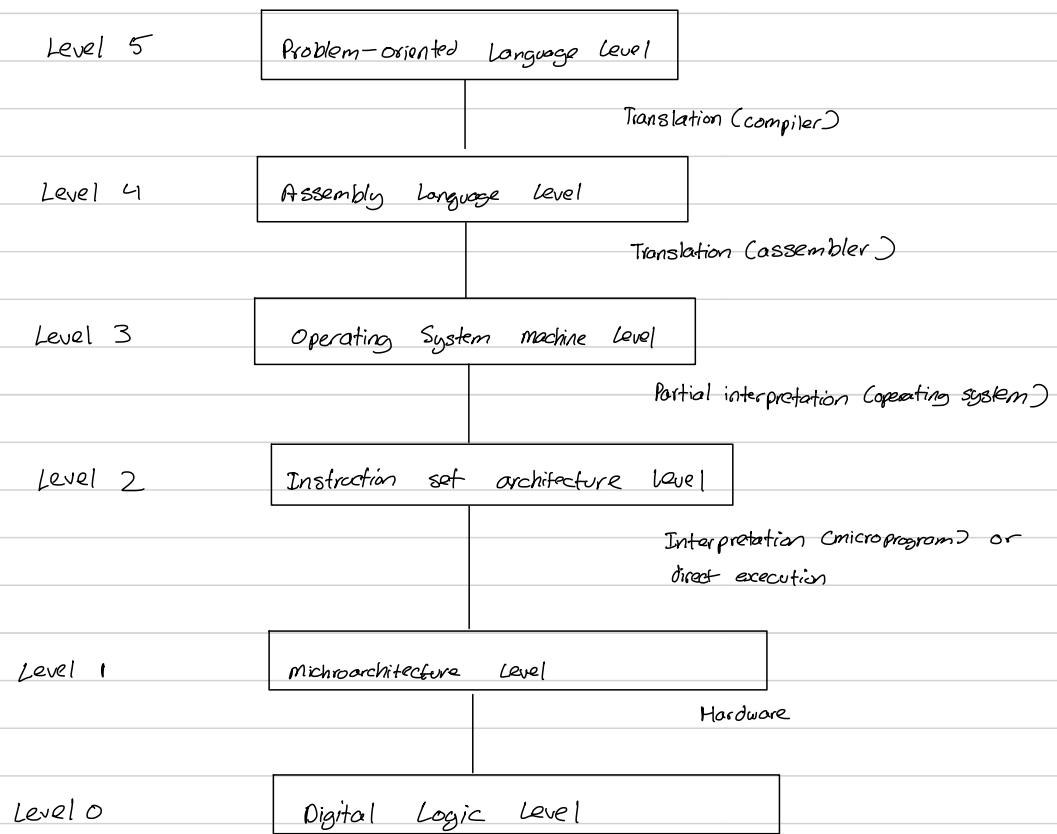 Level 5 Problem-oriented Language Level
Translation (compiler)
Level 4 Assembly Language Level
Translation (assembler)
Level 3 Operating System machine Level
Partial interpretation (opeating system)
Level 2 Instruction set architecture Level
Interpretation (microprogram) or
direct execution
Level 1 Michroarchitecture Level
Hardware
Level 0 Digital Logic Level